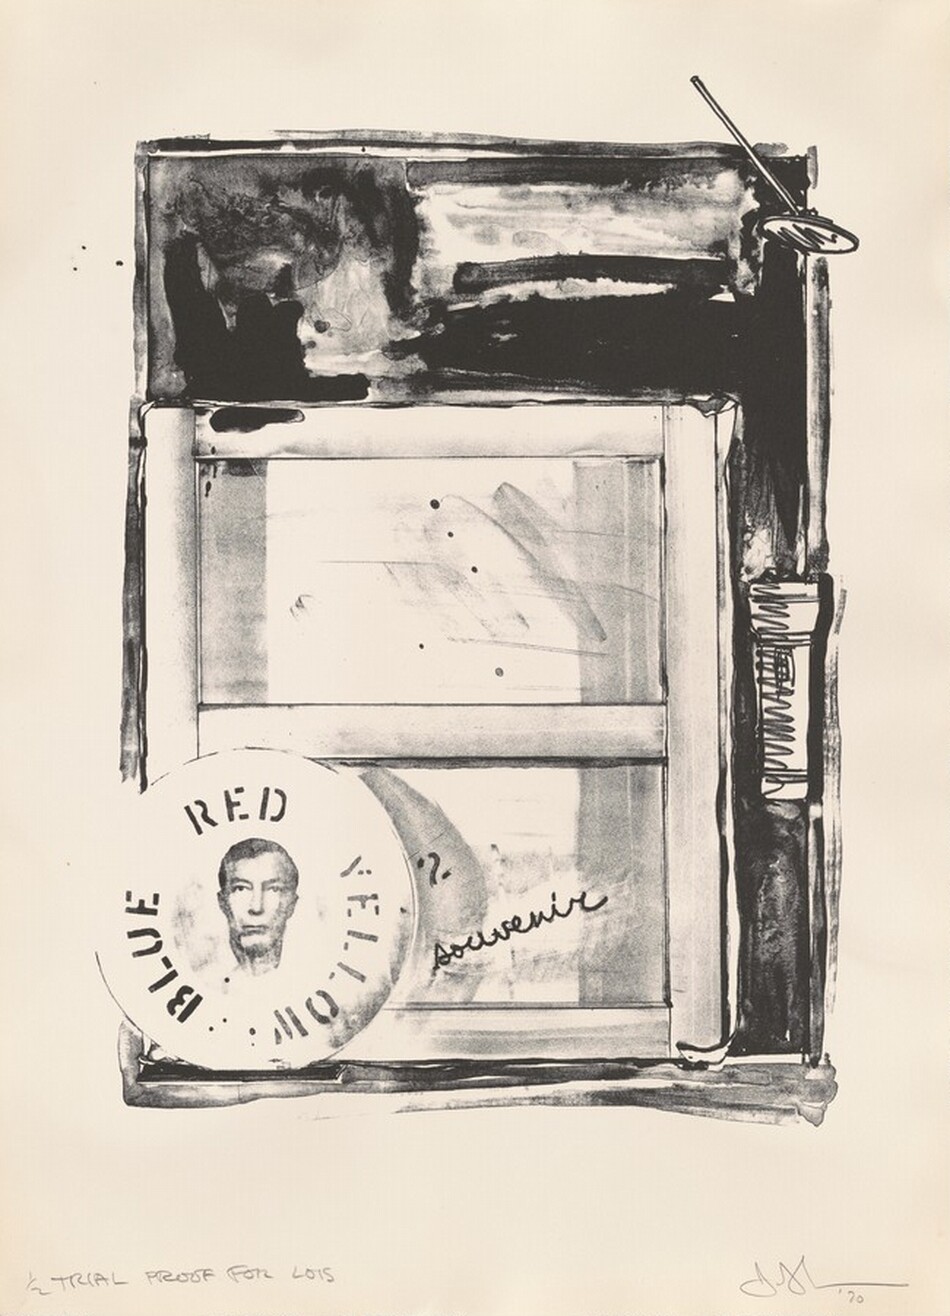 RED
YELLOW
BLUE
2
souvenir
1/2 TRIAL PROOF FOR LOIS
'70